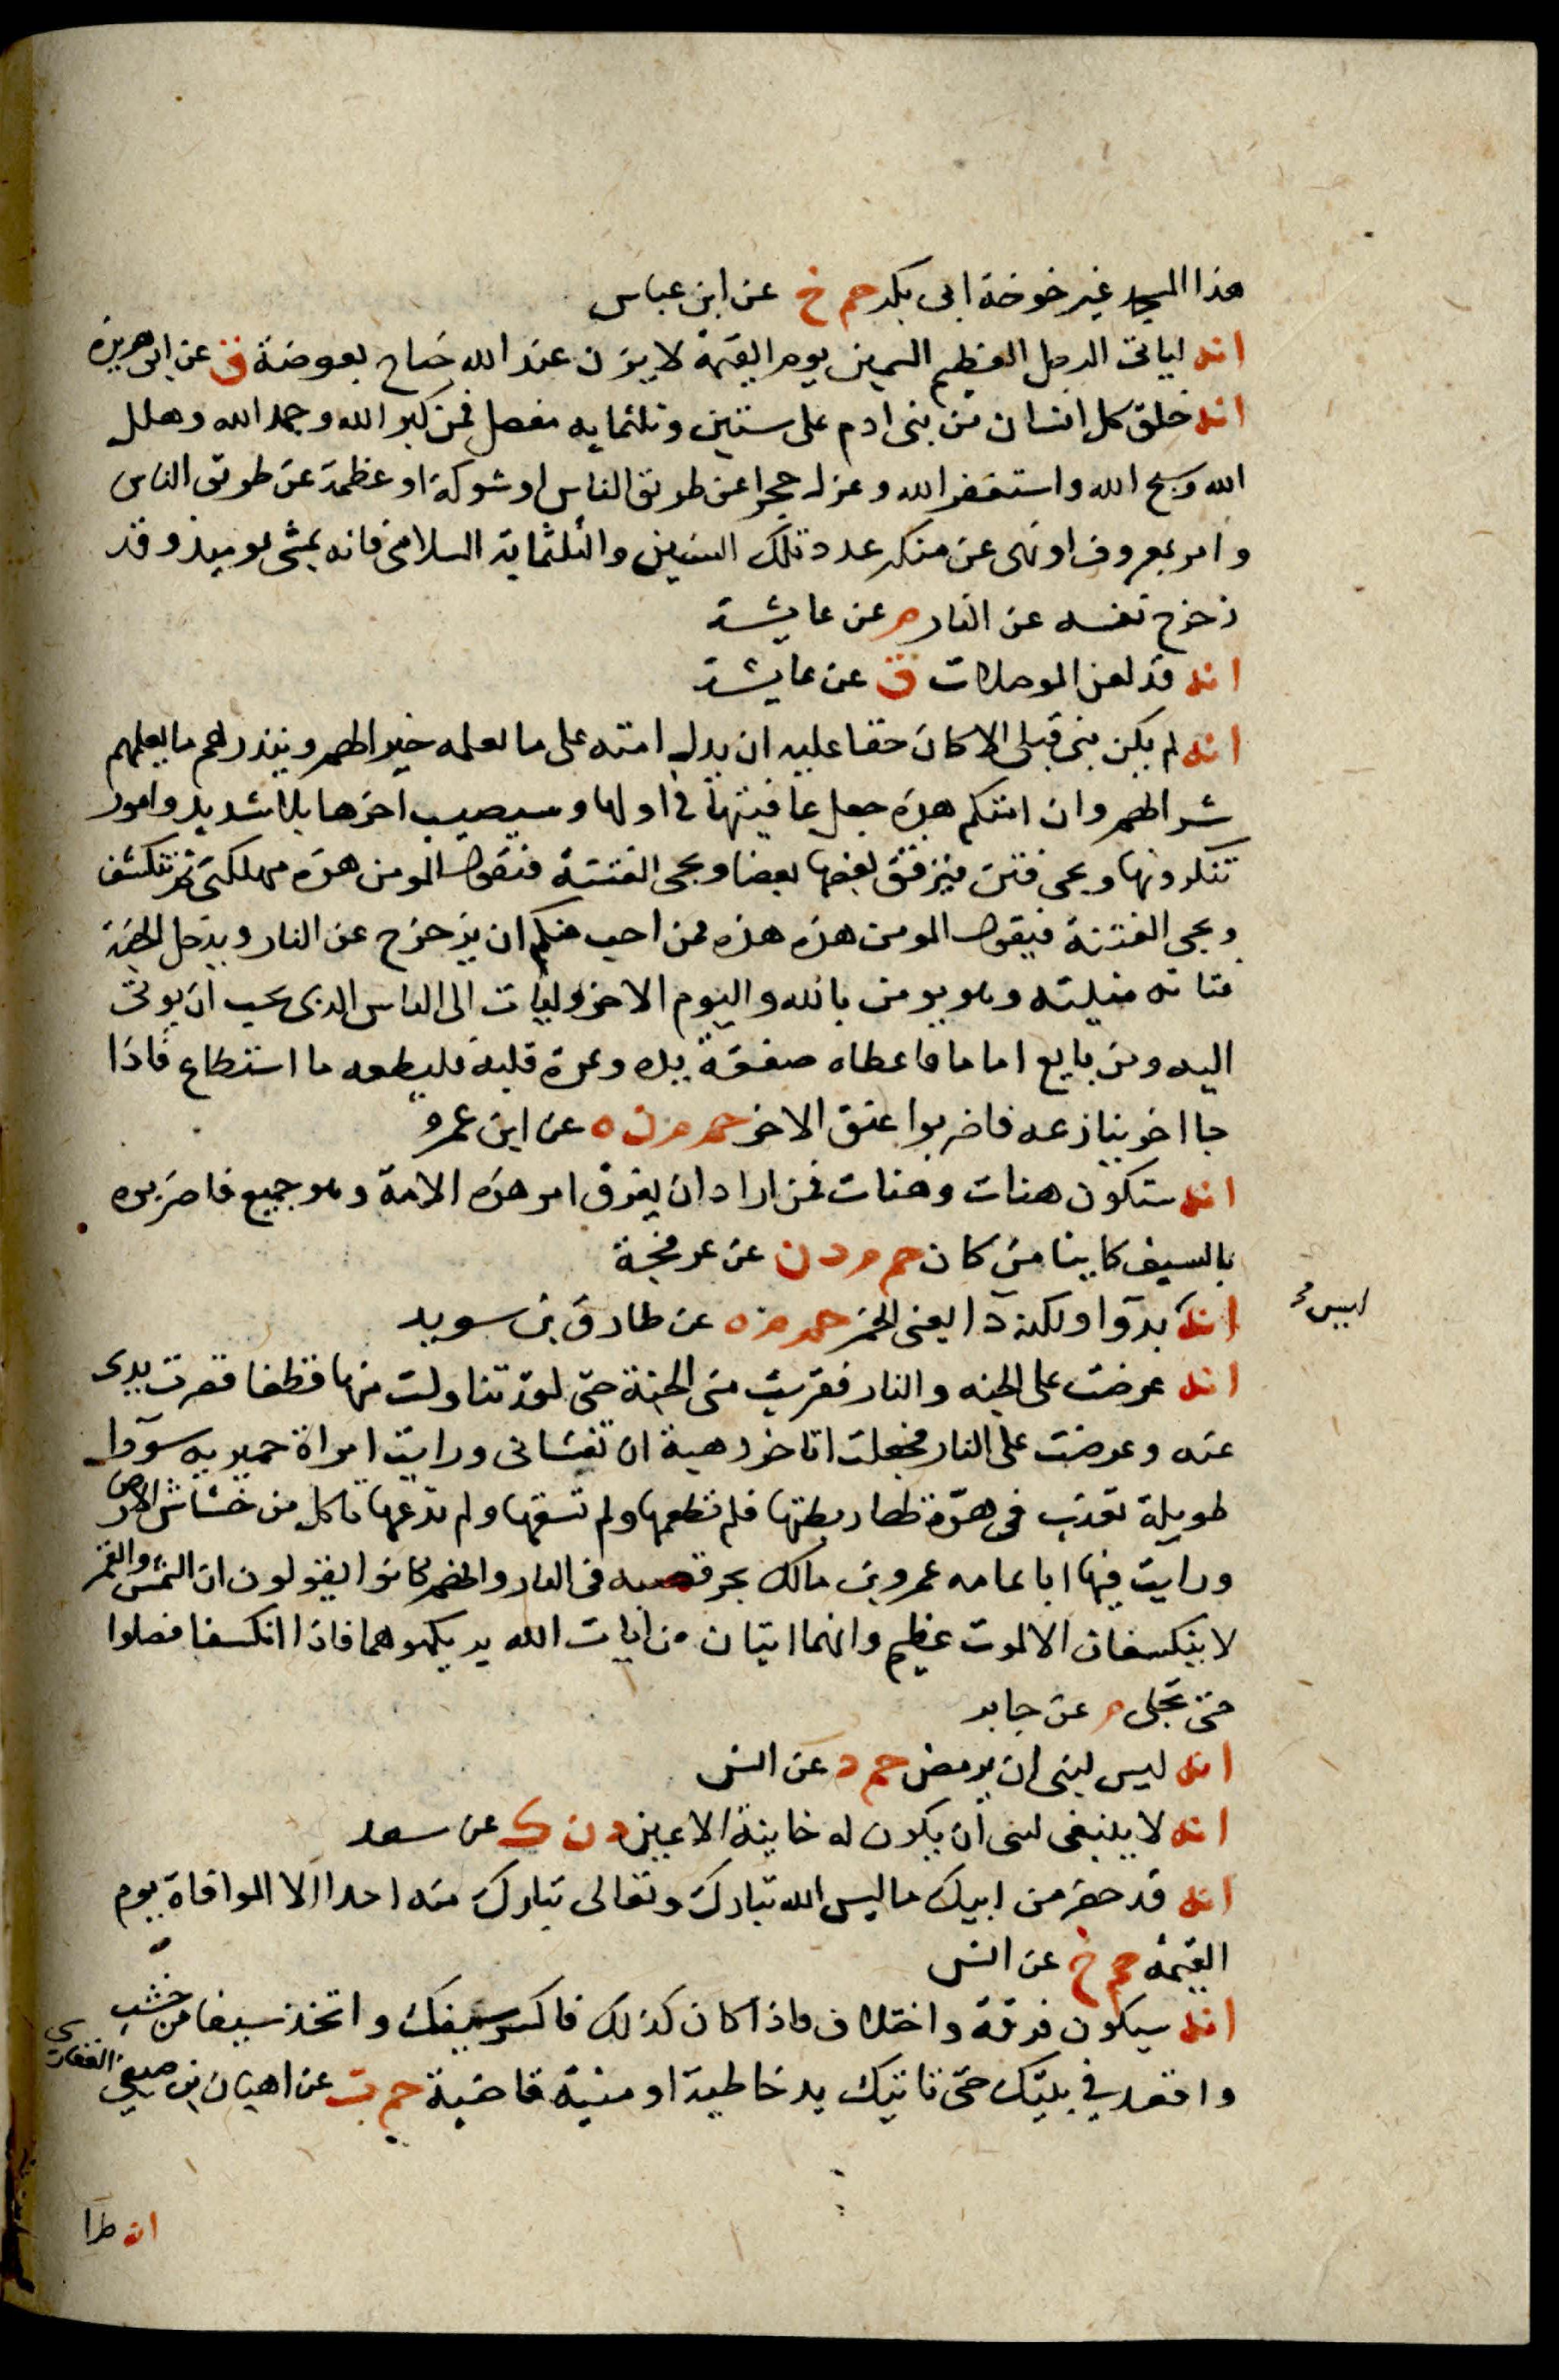 هذا المسجد غير خوخة ابى بكر حم خ عن ابن عباس
انه لياتى الرجل العظيم السمين يوم القيمة لا يزن عند الله جناح بعوضة ق عن ابى هريرة
انه خلق كل انسان من بنى ادم على ستين وثلثمايه مفصل فمن كبر الله وحمد الله وهلل
الله وسبح الله واستغفر الله وعزل حجرا عن طريق الناس او شوكة او عظمة عن طريق الناس
وامر بمعروف او نهى عن منكر عدد تلك الستين والثلثماية السلامى فانه يمشى يوميذ وقد
زحزح نفسه عن النار م عن عايشة
انه قد لعن الموصلات ق عن عايشة
انه لم يكن نبى قبلى الا كان حقا عليه ان يدل امته على ما يعلمه خيرا لهم وينذرهم ما يعلمهم
شرا لهم وان امتكم هذه جعل عافيتها فى اولها وسيصيب اخرها بلا شديد وامور
تنكرونها وتجى فتن فيزفق بعضها بعضا وتجى الفتنة فيقول المومن هذه مهلكتى ثم تنكشف
وتجى الفتنة فيقول المومن هذه هذه فمن احب منكم ان يزحزح عن النار ويدخل الجنة
فتاته منيته وهو يومن بالله واليوم الاخر وليات الى الناس الذى يحب ان يوتى
اليه ومن بايع اماما فاعطاه صفقة يده وثمرة قلبه فليطعه ما استطاع فاذا
جا اخر ينازعه فاضربوا عنق الاخر حم م ن ه عن ابن عمرو
انه ستكون هنات وهنات فمن اراد ان يفرق امر هذه الامة وهو جميع فاضربوه
بالسيف كاينا من كان حم م د ن عن عرفجة
ليس
انه بدوا ولكنه دا يعنى الخمر حم م ه عن طارق بن سويد
انه عرضت على الجنه والنار فقربت منى الجنة حتى لقد تناولت منها قطفا قصرت يدى
عنه وعرضت على النار فجعلت اتاخر رهبة ان تغشانى ورايت امراة حميريه سودا
طويلة تعذب فى هرة لها ربطتها فلم تطعمها ولم تسقها ولم تدعها تاكل من خشاش الارض
ورايت فيها ابا ثمامه عمرو بن مالك يجر قصبه فى النار وانهم كانوا يقولون ان الشمس والقمر
لا ينكسفان الا لموت عظيم وانهما ايتان من ايات الله يريكموهما فاذا انكسفا فصلوا
حتى تجلى م عن جابر
انه ليس لنبى ان يومض حم د عن انس
انه لا ينبغى لنبى ان يكون له خاينة الاعين د ن ك عن سعد
انه قد حضر من ابيك ما ليس الله تبارك وتعالى بتارك منه احدا الا الموافاة يوم
القيمة حم خ عن انس
انه سيكون فرقة واختلاف فاذا كان كذلك فاكسر سيفك واتخذ سيفا من خشب
واقعد فى بيتك حتى تاتيك يد خاطية او منية قاضية حم ت عن اهبان بن صيفى الغفارى